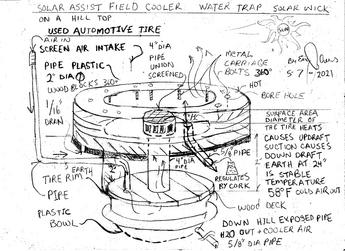 SOLAR ASSIST FIELD COOLER WATER TRAP SOLAR WICK
ON A HILL TOP
USED AUTOMOTIVE TIRE
AIR IN
SCREEN AIR INTAKE
PIPE PLASTIC
2" DIA
WOOD BLOCKS 360°
1/16"
DRAN
4" DIA
PIPE
UNION
SCREENED
METAL
CARRIAGE
BOLTS 360°
SUN
5-7-2021
HOT
BORE HOLE
SURFACE AREA
DIAMETER OF
THE TIRE HEATS
CAUSES UPDRAFT
SUCTION CAUSES
DOWN DRAFT
EARTH AT 24"
IS STABLE
TEMPERATURE
58°F COLD AIR OUT
5/8 PIPE
REGULATED
BY CORK
4" DIA
PIPE
EARTH
TIRE RIM
PIPE
PLASTIC
BOWL
WOOD DECK
DOWN HILL EXPOSED PIPE
H2O OUT + COOLER AIR
5/8" DIA PIPE